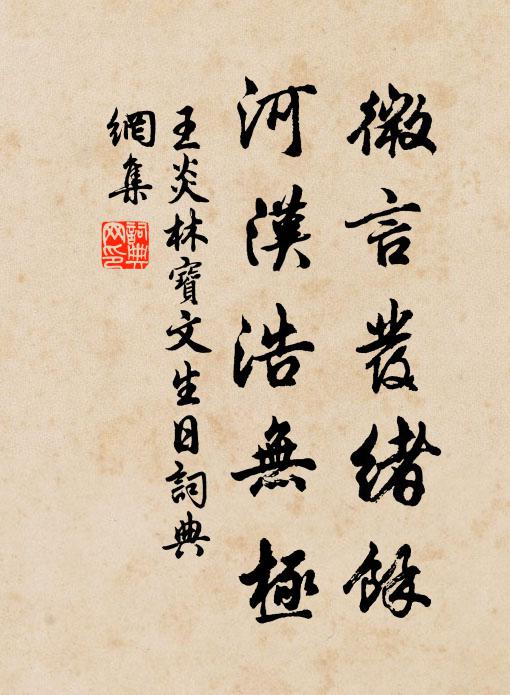 微言發緒餘
河漢浩無極
王炎林寶文生日詞典
網集
詞典
网印